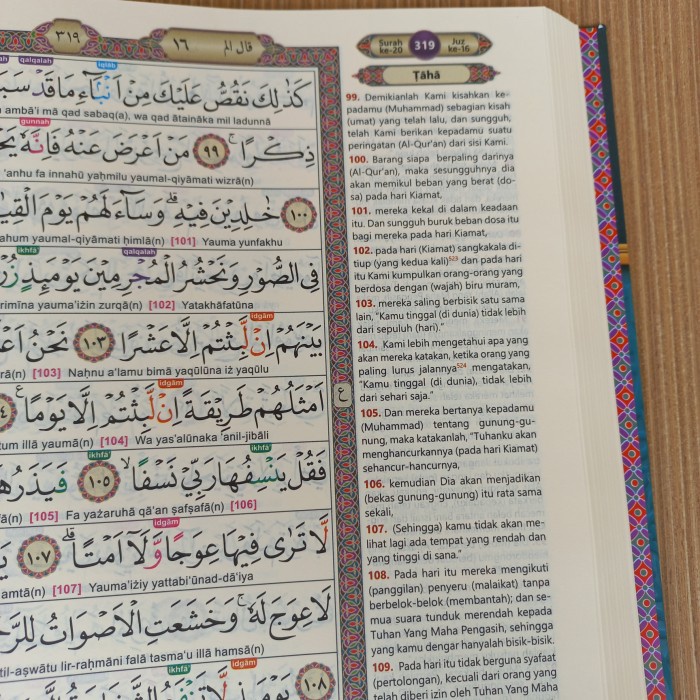 ٣١٩
١٦
قال الم
qalqalah
iqlāb
كَذٰلِكَ نَقُصُّ عَلَيْكَ مِنْ اَنْۢبَاۤءِ مَا قَدْ
ambā'i mā qad sabaq(a), wa qad ātaināka mil ladunnā
gunnah
ذِكْرًا ۚ ٩٩ مَنْ اَعْرَضَ عَنْهُ فَاِنَّهٗ
'anhu fa innahū yaḥmilu yaumal-qiyāmati wizrā(n)
١٠٠ خٰلِدِيْنَ فِيْهِ ۗ وَسَاۤءَ لَهُمْ يَوْمَ
ahum yaumal-qiyāmati ḥimlā(n) [101] Yauma yunfakhu
ikhfā
qalqalah
فِى الصُّوْرِ وَنَحْشُرُ الْمُجْرِمِيْنَ يَوْمَىِٕذٍ
rimīna yauma'iżin zurqā(n) [102] Yatakhāfatūna
idgām
بَيْنَهُمْ اِنْ لَّبِثْتُمْ اِلَّا عَشْرًا ١٠٣ نَحْنُ
rā(n) [103] Naḥnu a'lamu bimā yaqūlūna iż yaqūlu
idgām
اَمْثَلُهُمْ طَرِيْقَةً اِنْ لَّبِثْتُمْ اِلَّا يَوْمًا ࣖ
tum illā yaumā(n) [104] Wa yas'alūnaka 'anil-jibāli
ikhfā
ikhfā
فَقُلْ يَنْسِفُهَا رَبِّيْ نَسْفًا ۙ ١٠٥ فَيَذَرُهَا
fā(n) [105] Fa yażaruhā qā'an ṣafṣafā(n) [106]
idgām
لَّا تَرٰى فِيْهَا عِوَجًا وَّلَآ اَمْتًا ۗ ١٠٧
amtā(n) [107] Yauma'iżiy yattabi'ūnad-dā'iya
لَا عِوَجَ لَهٗ ۚ وَخَشَعَتِ الْاَصْوَاتُ
til-aṣwātu lir-raḥmāni falā tasma'u illā hamsā(n)
ikhfā
idgām
١٠٨
ع
Surah ke-20
319
Juz ke-16
Ṭāhā
99. Demikianlah Kami kisahkan ke-
padamu (Muhammad) sebagian kisah
(umat) yang telah lalu, dan sungguh,
telah Kami berikan kepadamu suatu
peringatan (Al-Qur'an) dari sisi Kami.
100. Barang siapa berpaling darinya
(Al-Qur'an), maka sesungguhnya dia
akan memikul beban yang berat (do-
sa) pada hari Kiamat,
101. mereka kekal di dalam keadaan
itu. Dan sungguh buruk beban dosa itu
bagi mereka pada hari Kiamat,
102. pada hari (Kiamat) sangkakala di-
tiup (yang kedua kali)523 dan pada hari
itu Kami kumpulkan orang-orang yang
berdosa dengan (wajah) biru muram,
103. mereka saling berbisik satu sama
lain, "Kamu tinggal (di dunia) tidak lebih
dari sepuluh (hari)."
104. Kami lebih mengetahui apa yang
akan mereka katakan, ketika orang yang
paling lurus jalannya524 mengatakan,
"Kamu tinggal (di dunia), tidak lebih
dari sehari saja."
105. Dan mereka bertanya kepadamu
(Muhammad) tentang gunung-gu-
nung, maka katakanlah, "Tuhanku akan
menghancurkannya (pada hari Kiamat)
sehancur-hancurnya,
106. kemudian Dia akan menjadikan
(bekas gunung-gunung) itu rata sama
sekali,
107. (Sehingga) kamu tidak akan me-
lihat lagi ada tempat yang rendah dan
yang tinggi di sana."
108. Pada hari itu mereka mengikuti
(panggilan) penyeru (malaikat) tanpa
berbelok-belok (membantah); dan se-
mua suara tunduk merendah kepada
Tuhan Yang Maha Pengasih, sehingga
yang kamu dengar hanyalah bisik-bisik.
109. Pada hari itu tidak berguna syafaat
(pertolongan), kecuali dari orang yang
telah diberi izin oleh Tuhan Yang Maha